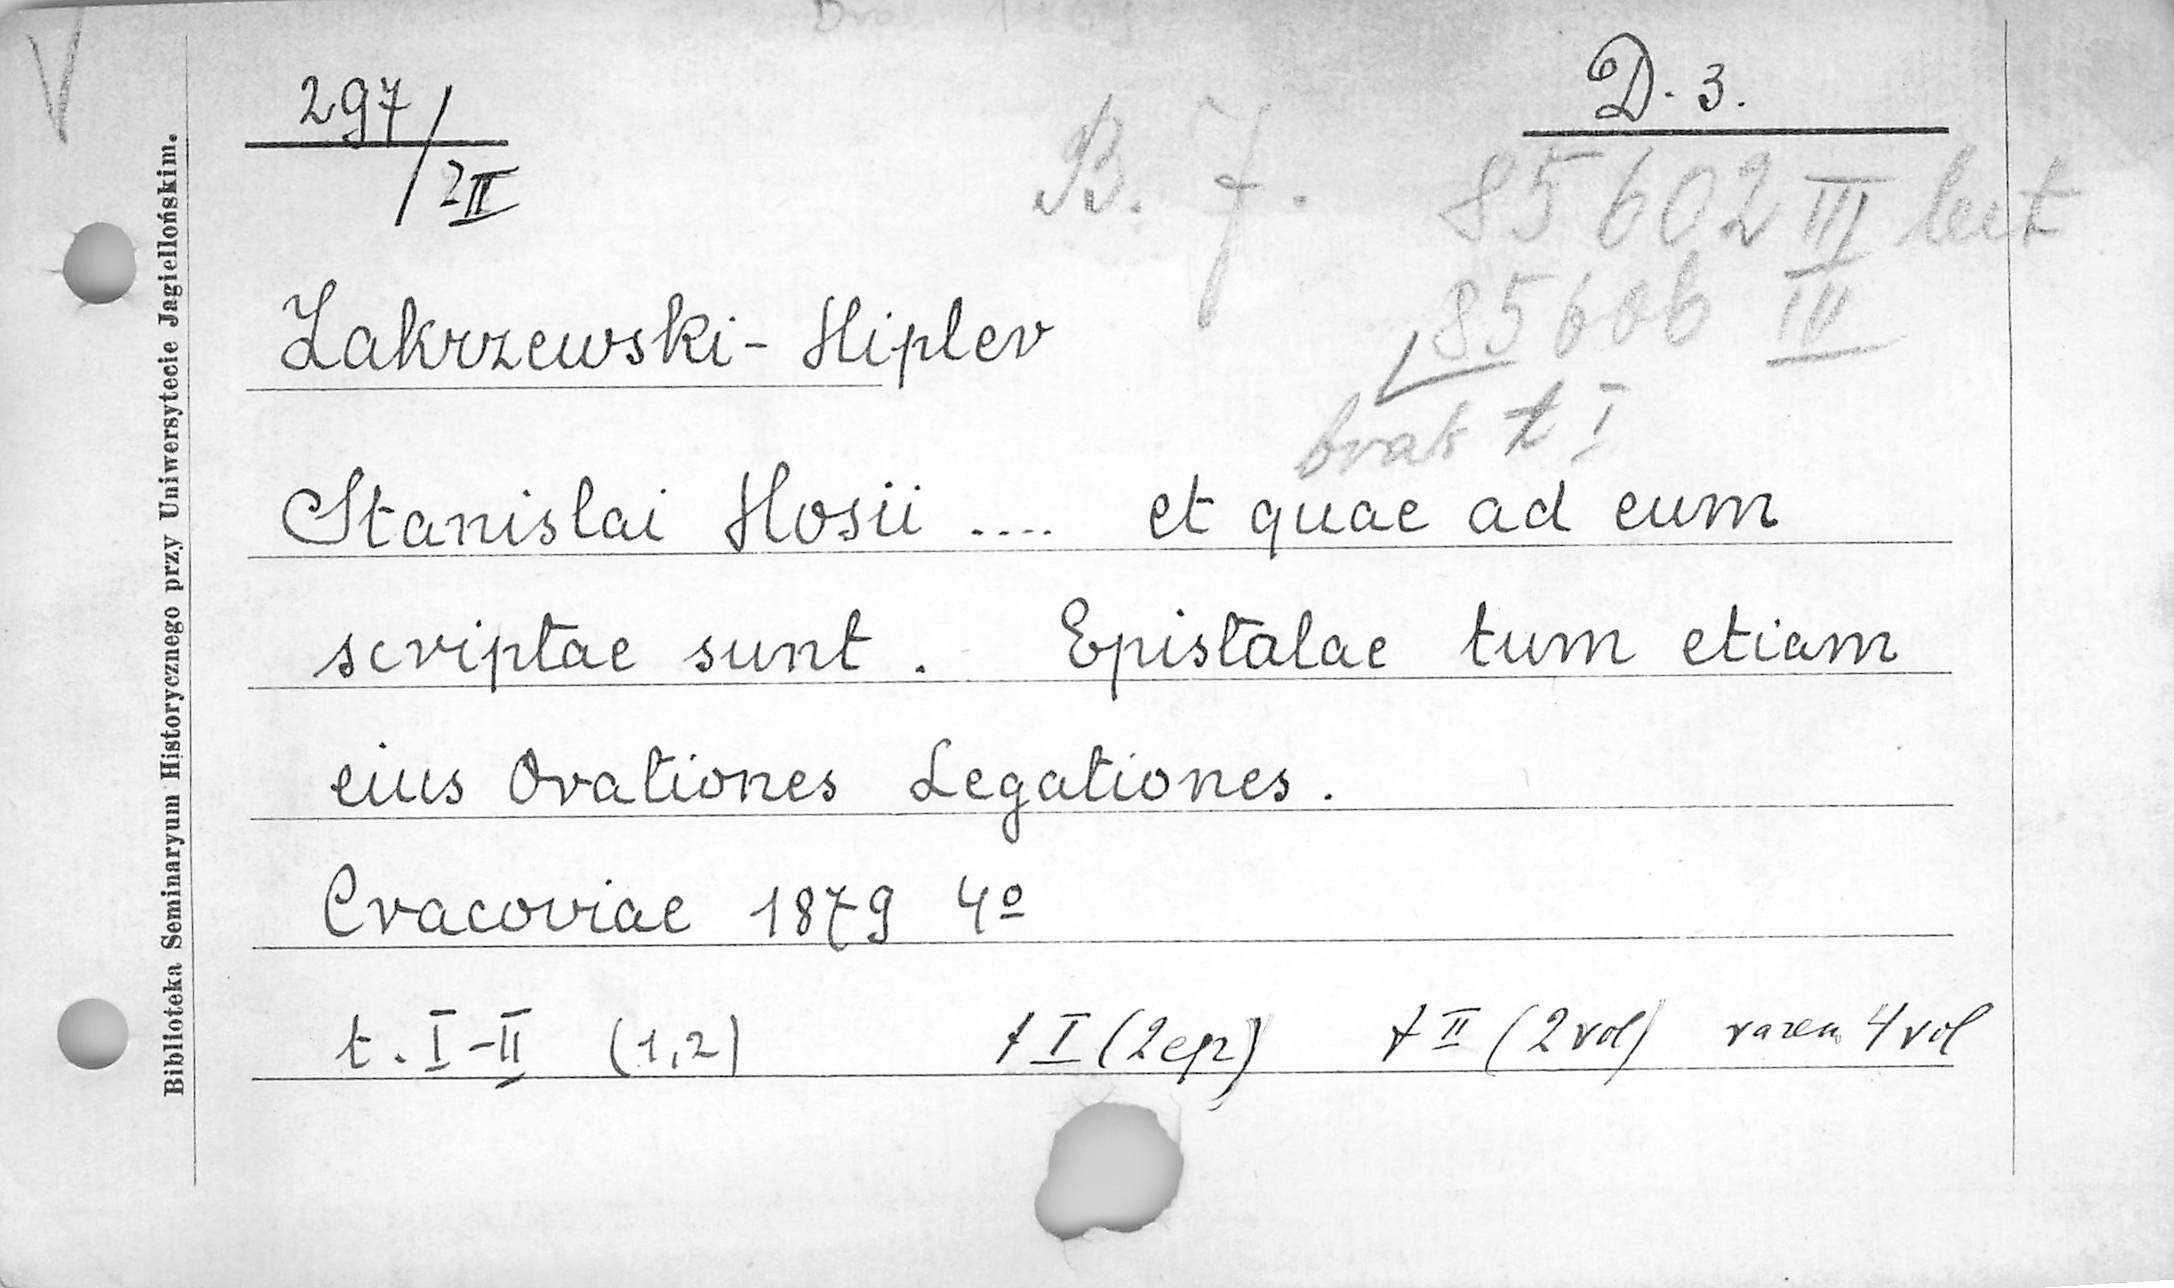 V
297/2II
D. 3.
B. 7.
85602 III
85606 III
brak t I
Zakrzewski - Hipler
Stanislai Hosii .... et quae ad eum
scriptae sunt. Epistalae tum etiam
eius Orationes Legationes.
Cracoviae 1879 4º
t. I-II (1,2) t I (2 ep) t II (2 vol) razem 4 vol
Biblioteka Seminaryum Historycznego przy Uniwersytecie Jagiellońskim.